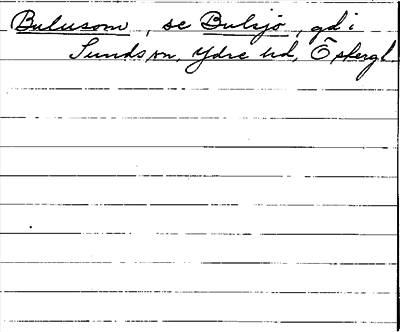 Bulusom, se Bulsjö, gd i
Sunds sn, Ydre hd, Östergl.